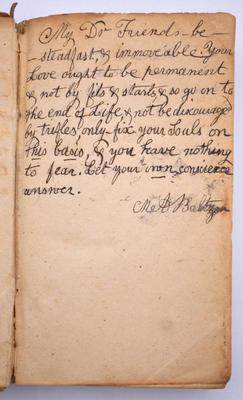 My Dr Friends be
steadfast, & immoveable. Your
Love ought to be permanent
& not by fits & starts & so go on to
the end of Life, & not be discouraged
by trifles only fix your Souls on
this basis, & you have nothing
to fear. Let your own conscience
answer.